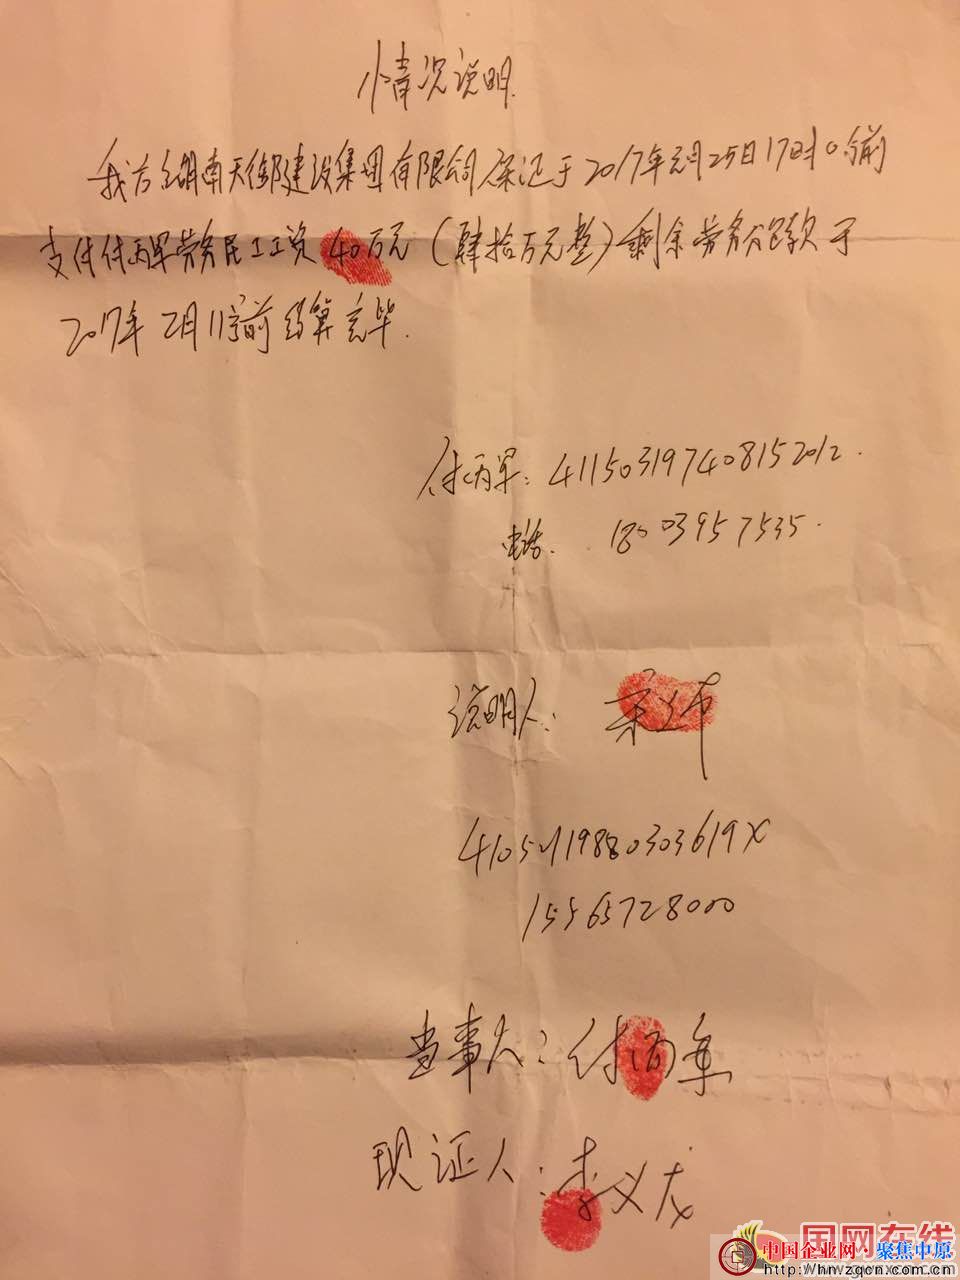 情况说明
我方湖南天御建设集团有限公司承诺于2017年元月25日17时0分前
支付付丙军劳务民工工资40万元(肆拾万元整)剩余劳务分包款于
2017年2月11号前结算完毕.
付丙军: 411503197408152012.
电话. 18003957535.
说明人:
41052119880303619X
15565728000
当事人: 付丙军
现证人: 李义龙
国网在线
中国企业网·聚焦中原
http://hn.zgcn.com.cn